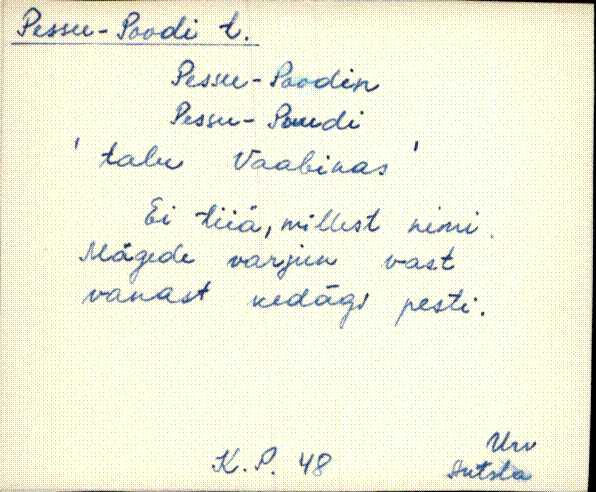 Pessu-Poodi t.
Pessu-Poodin
Pessu-Puudi
' talu Vaabinas '
Ei tiiä, millest nimi.
Mägede varjun vast
vanast kedägi pesti.
Urv
K.P. 48
Antsla